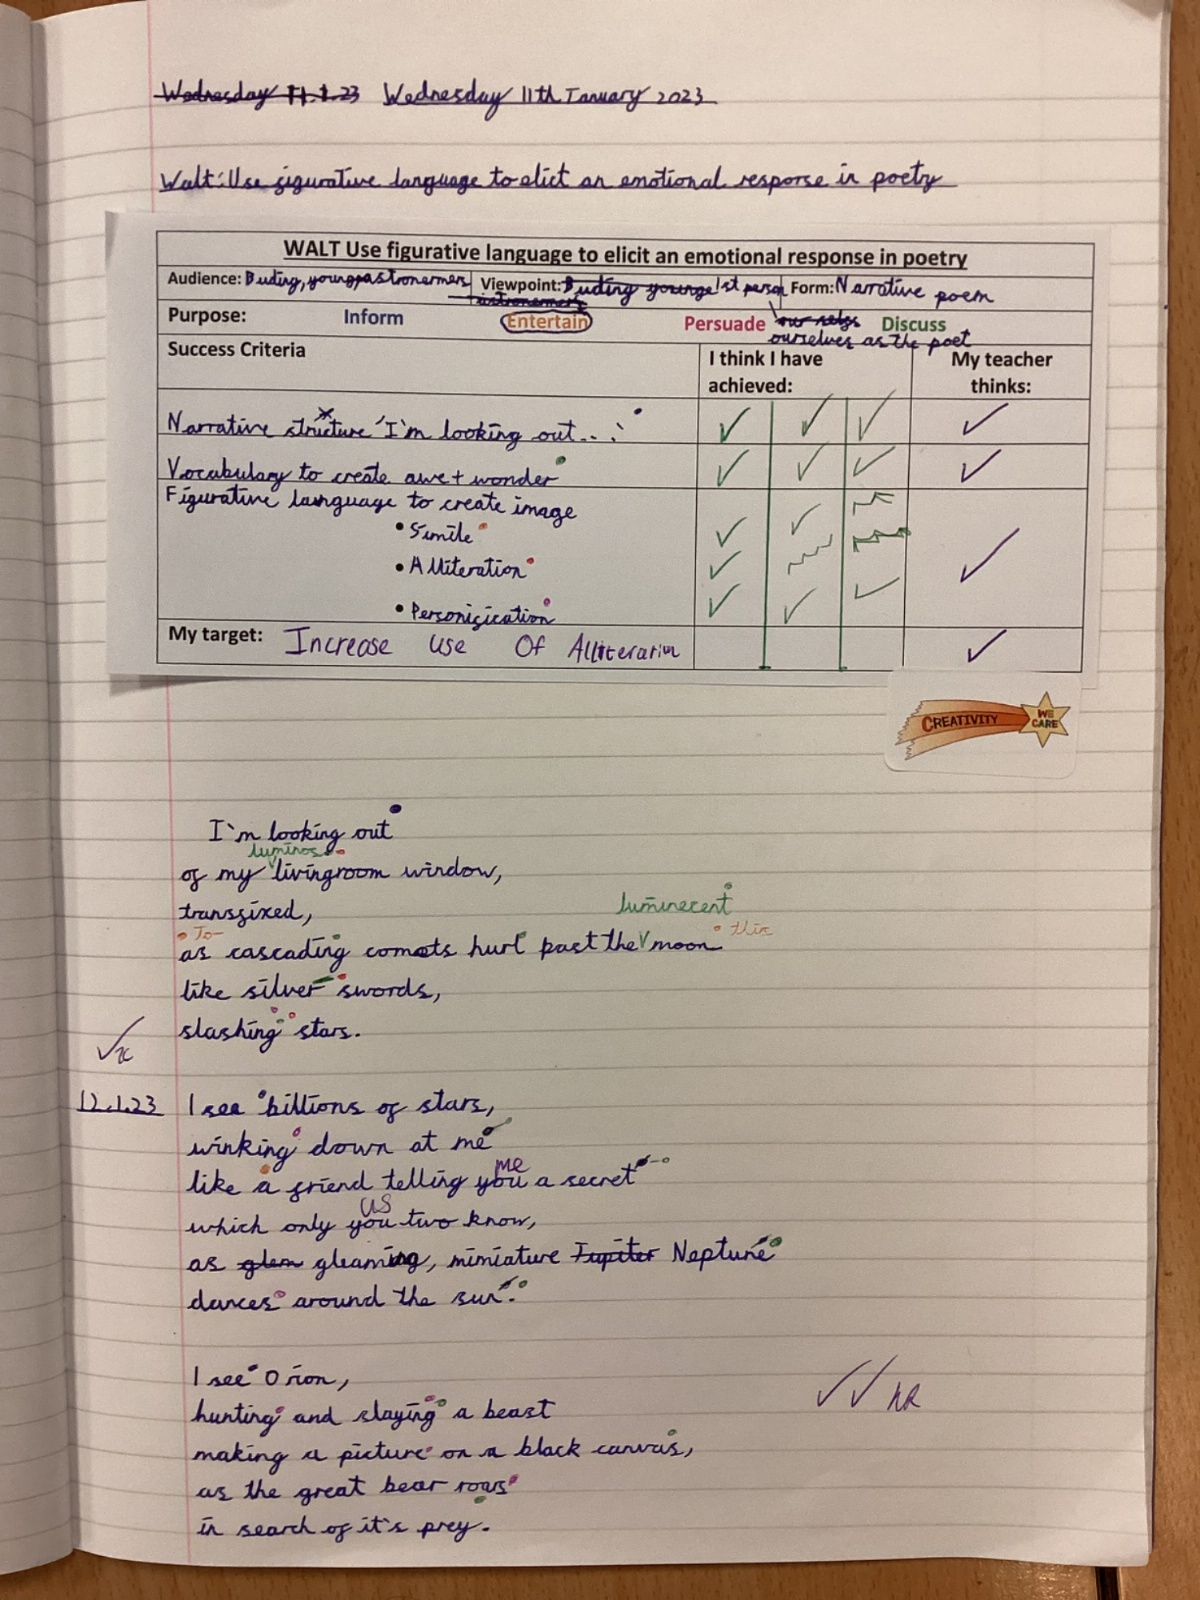 Wednesday 11.1.23 Wednesday 11th January 2023
Walt: Use figurative language to elict an emotional response in poetry
WALT Use figurative language to elicit an emotional response in poetry
Audience: Buding, young astronemers Viewpoint: Buding younge astronemers 1st person Form: Narrative poem
Purpose: Inform Entertain Persuade Discuss
ourselves as the poet
Success Criteria I think I have achieved: My teacher thinks:
Narrative structure 'I'm looking out...'
Vocabulary to create awe + wonder
Figurative language to create image
• Simile
• Alliteration
• Personification
My target: Increase use of Alliteration
CREATIVITY WE CARE
I'm looking out
luminos
of my livingroom window,
transfixed,
luminecent
To this
as cascading comets hurl past the moon
like silver swords,
slashing stars.
12.1.23 I see billions of stars,
winking down at me
me
like a friend telling you a secret
us
which only you two know,
as glem gleaming, miniature Jupiter Neptune
dances around the sun.
I see Orion,
hunting and slaying a beast
making a picture on a black canvas,
as the great bear roars
in search of it's prey.